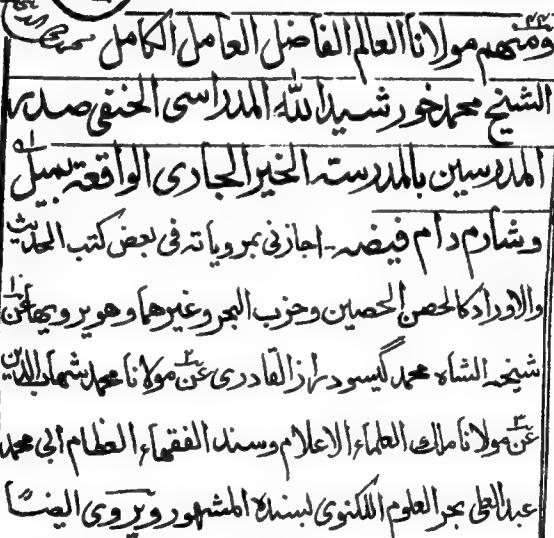 ومنهم مولانا العالم الفاضل العامل الكامل
الشيخ محمد خورشيد الله المدراسى الحنفى صدر
المدرسين بالمدرسته الخير الجارى الواقعة بميل
وشارم دام فيضه - اجازنى بمروياته فى بعض كتب الحديث
والاوراد كالحصن الحصين وحزب البحر وغيرهما وهو يرويها عن
شيخه الشاه محمد گيسو دراز القادرى عن مولانا محمد شهاب الدين
عن مولانا ملك العلماء الاعلام وسند الفقهاء العظام ابى محمد
عبد العلى بحر العلوم اللكنوى لبسنده المشهور ويروى ايضًا